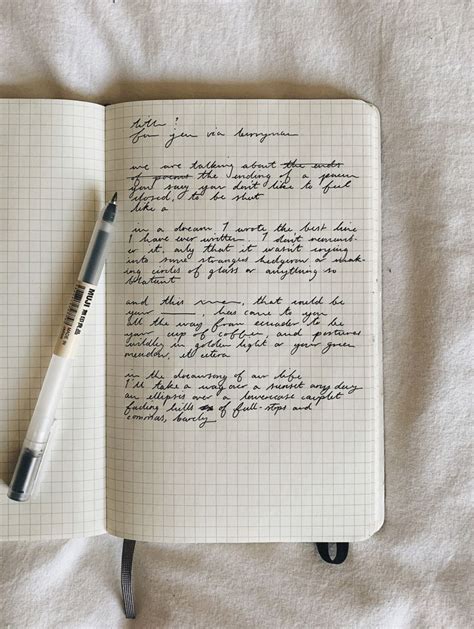 for jen via berryman
we are talking about the ends
of poems the ending of a poem
you say you don't like to feel
closed, to be shut
like a
in a dream I wrote the best line
I have ever written. I don't remem-
ber it, only that it wasn't
into some strangled hedgerow or mak-
ing circles of glass or anything so
blatant
and this, that could be
your, has come to you
all the way from ecuador to be
your cup of coffee, and
wildly in golden light or your green
meadow, et cetera
in the of our life
I'll take a wave over a sunset any day
an ellipses over a lowercase
fading hills of full-stops and
commas, barely
MUJI 無印良品